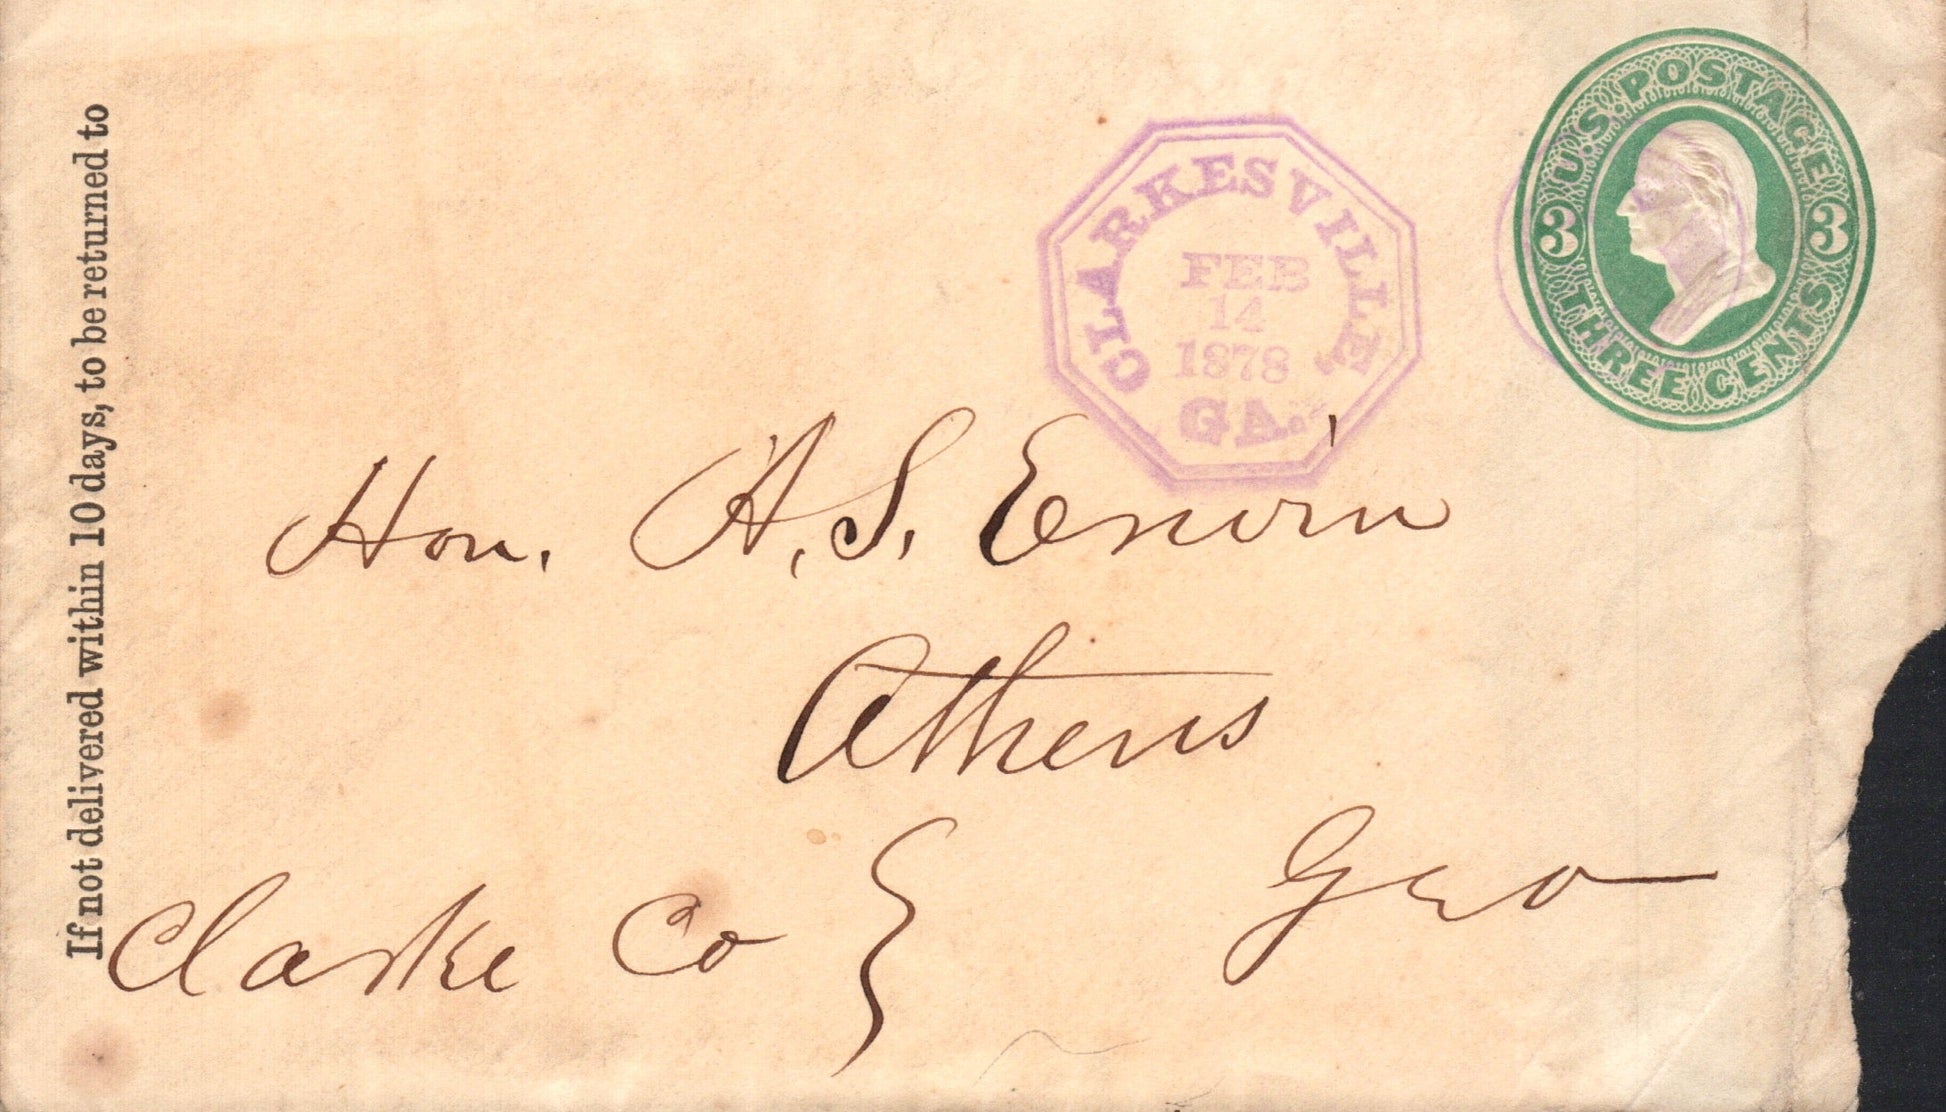 If not delivered within 10 days, to be returned to
U.S. POSTAGE
3 3
THREE CENTS
CLARKESVILLE
FEB
14
1878
GA.
Hon. A. S. Erwin
Athens
Clarke Co Geo